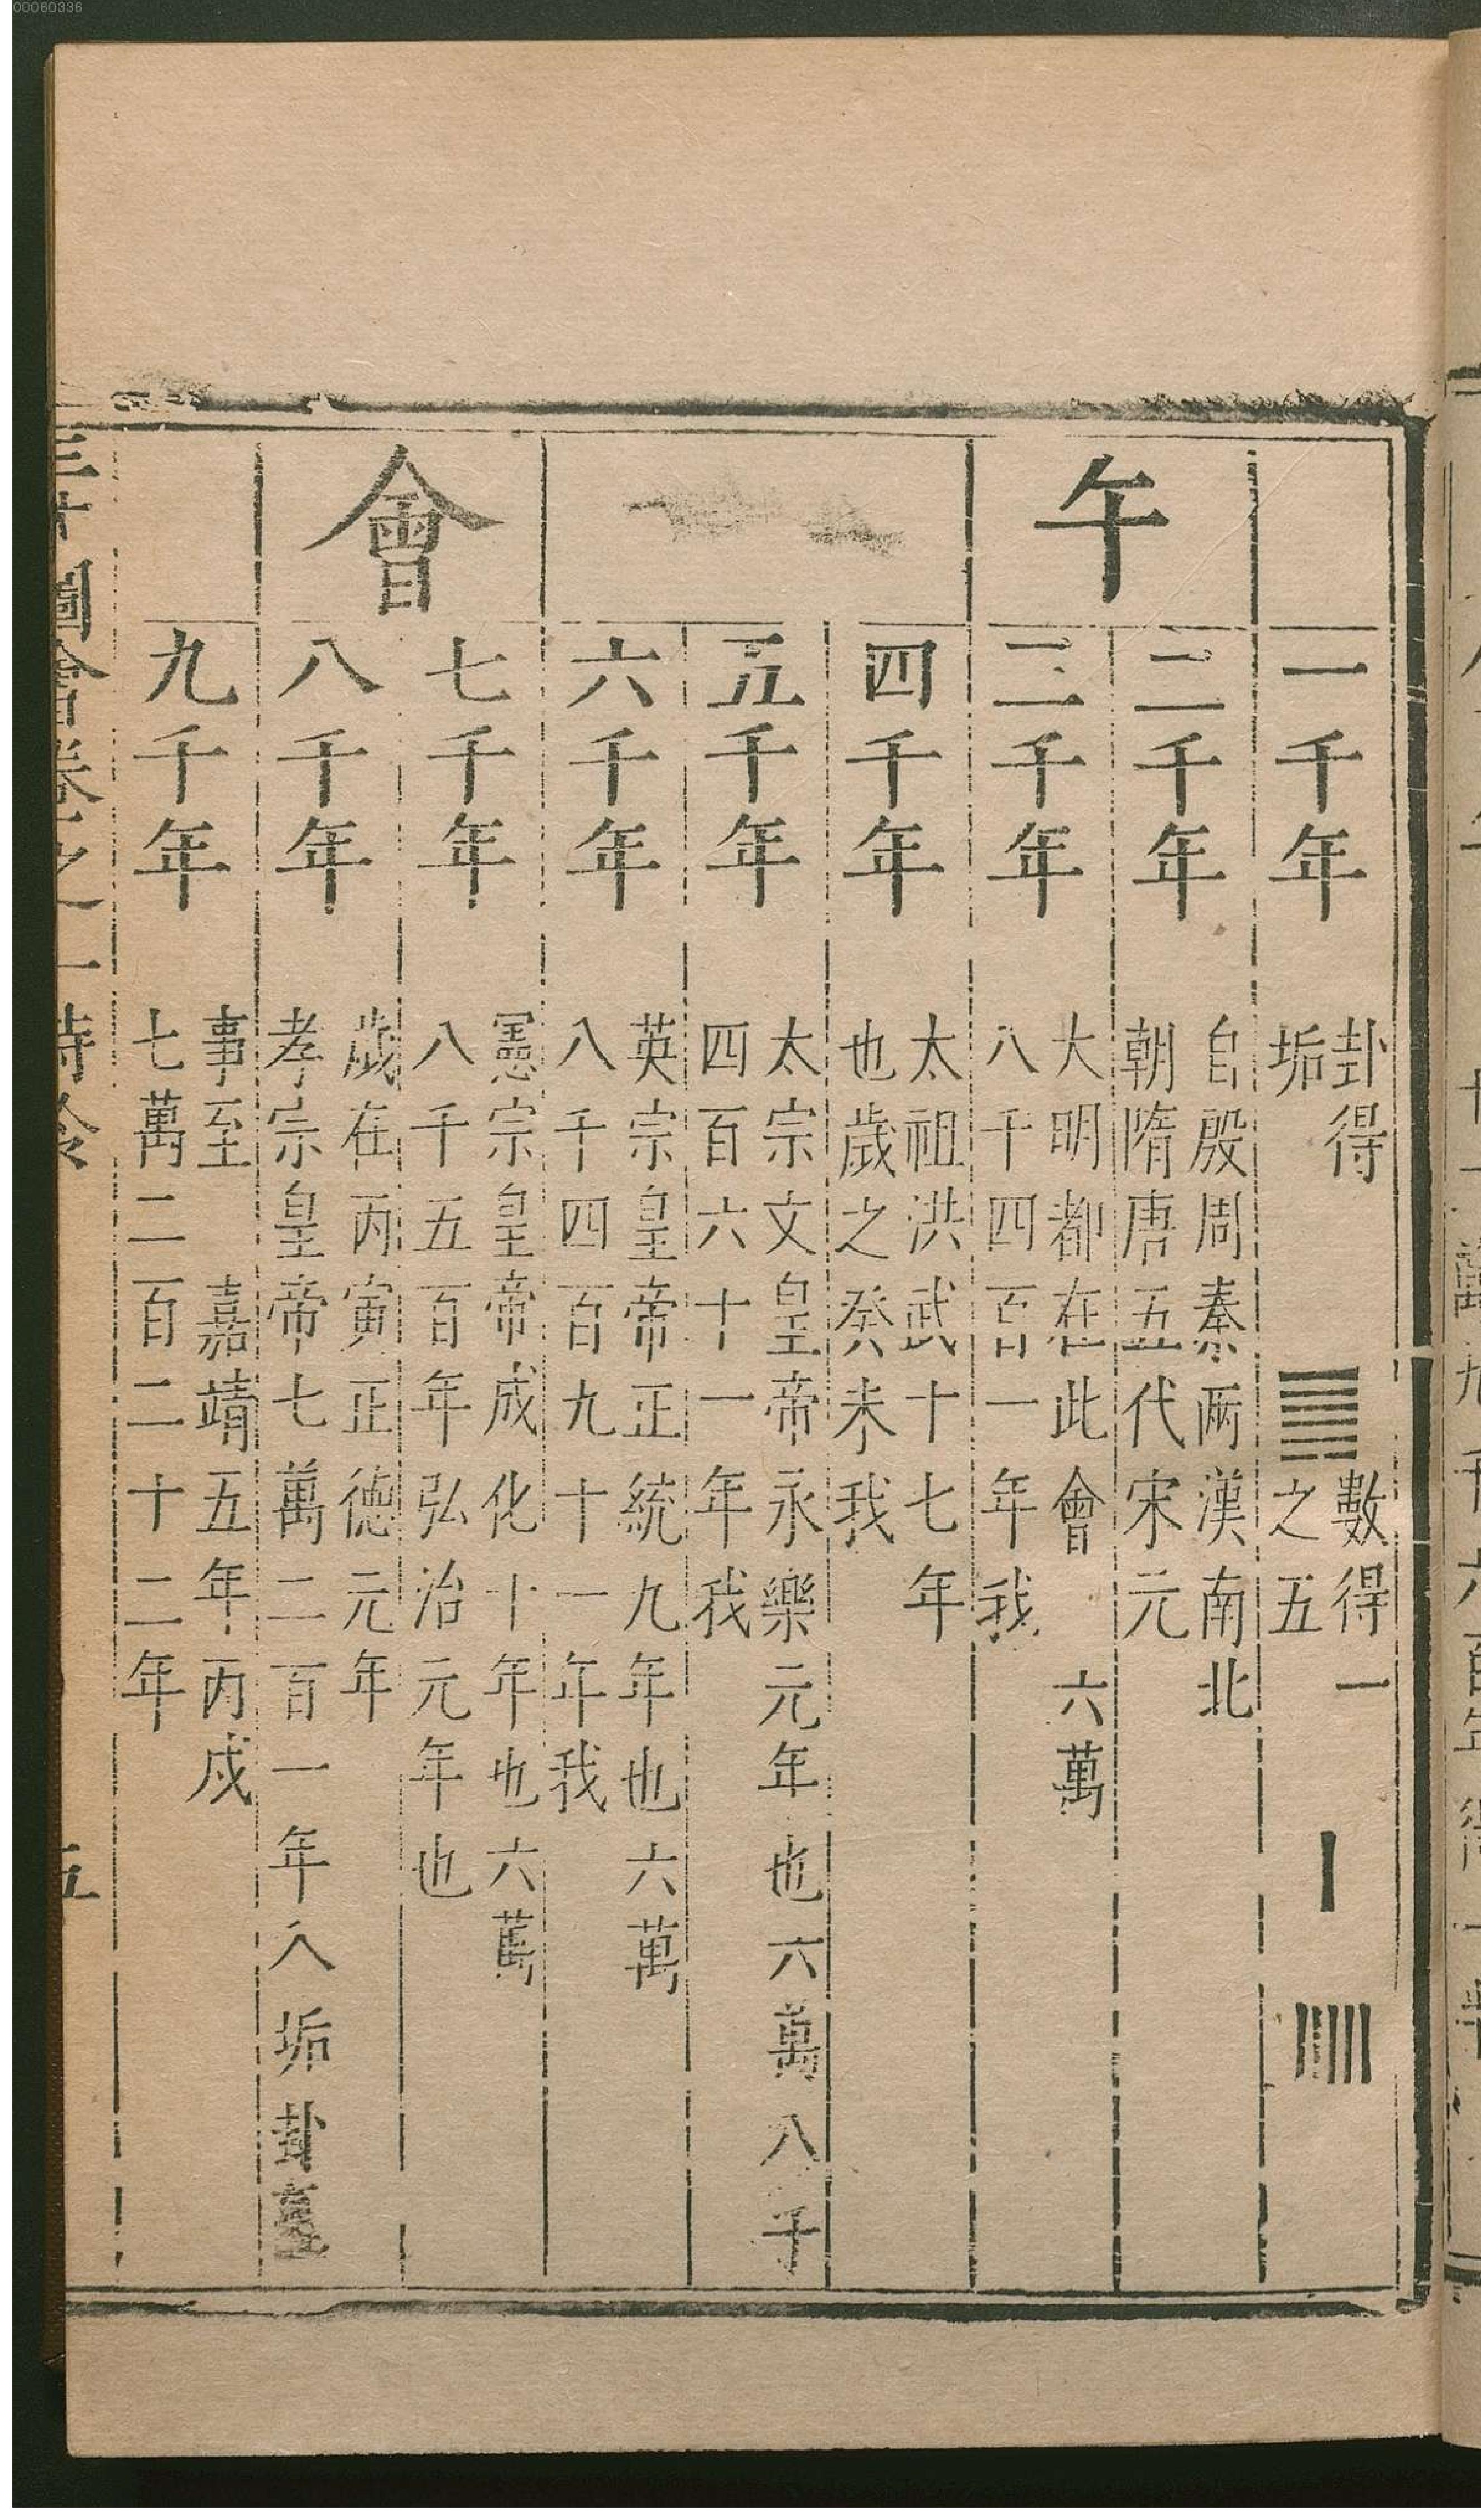 00060336
午會
一千年
卦得
垢
數得一
之五
二千年
自殷周秦两漢南北
朝隋唐五代宋元
三千年
大明都在此會 六萬
八千四百一年我
四千年
太祖洪武十七年
也歲之癸未我
五千年
太宗文皇帝永樂元年也六萬八千
四百六十一年我
六千年
英宗皇帝正統九年也六萬
八千四百九十一年我
七千年
憲宗皇帝成化十年也六萬
八千五百年弘治元年也
八千年
歲在丙寅正德元年
孝宗皇帝七萬二百一年入垢卦
九千年
事至 嘉靖五年丙戌
七萬二百二十二年
三才圖會卷之一時令
五